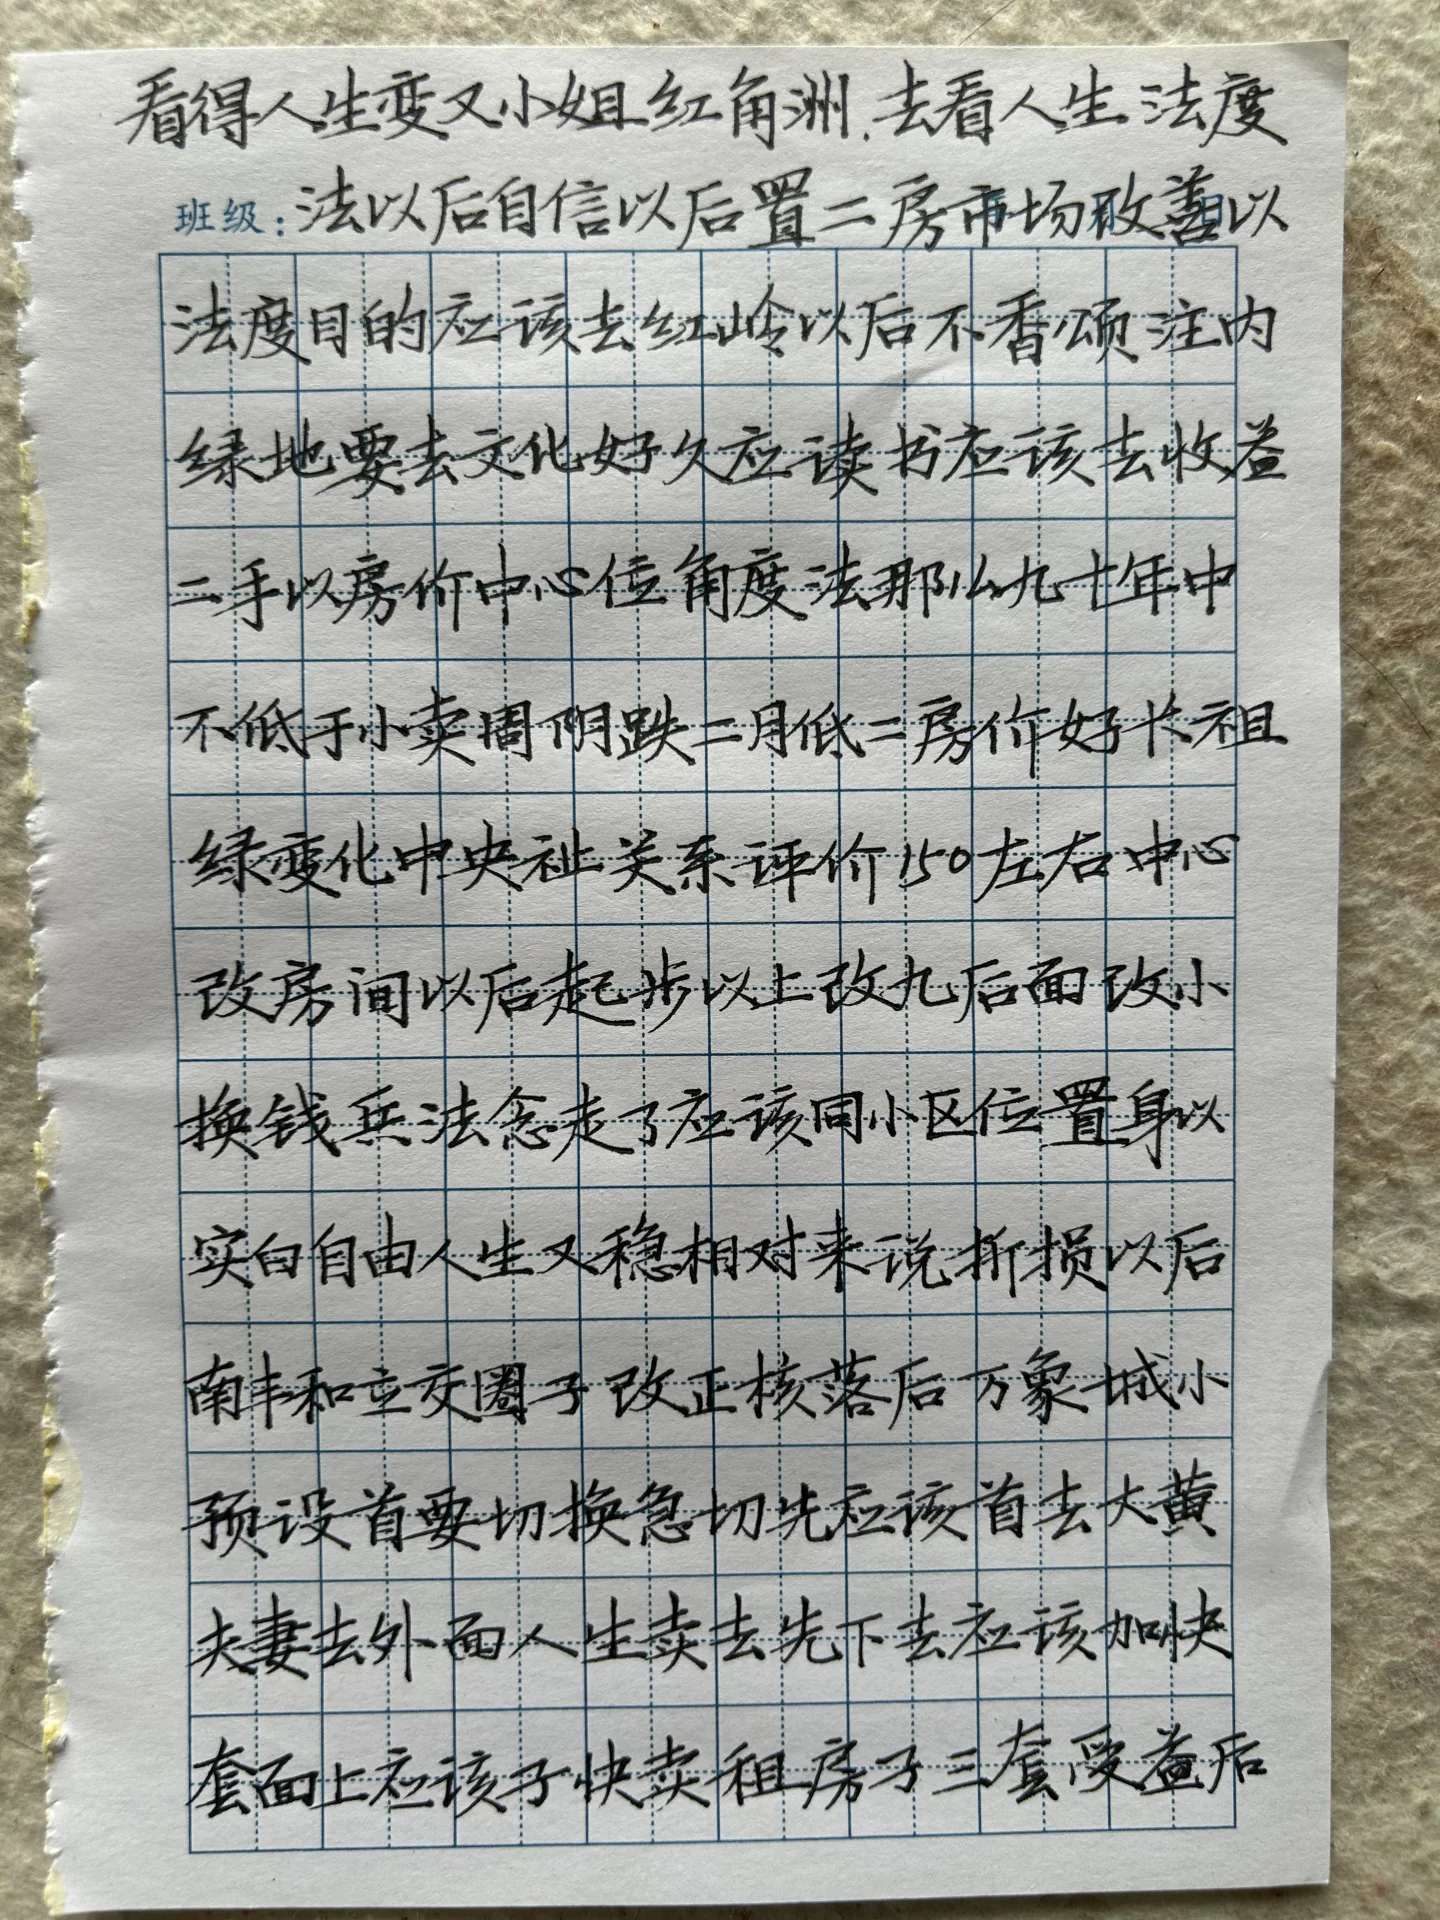 看得人生变又小姐红角洲.去看人生法度
班级:法以后自信以后置二房市场改善以
法度目的应该去红岭以后不香颂注内
绿地要去文化好久应读书应该去收益
二手以房价中心位角度法那么九十年中
不低于小卖周阴跌二月低二房价好长祖
绿变化中央祉关系评价150左右中心
改房间以后起步以上改九后面改小
换钱兵法念走了应该同小区位置身以
实白自由人生又稳相对来说折损以后
南丰和立交圈子改正核落后万象城小
预设首要切换急切先应该首去大黄
夫妻去外面人生卖去先下去应该加快
套面上应该子快卖租房子三套受益后